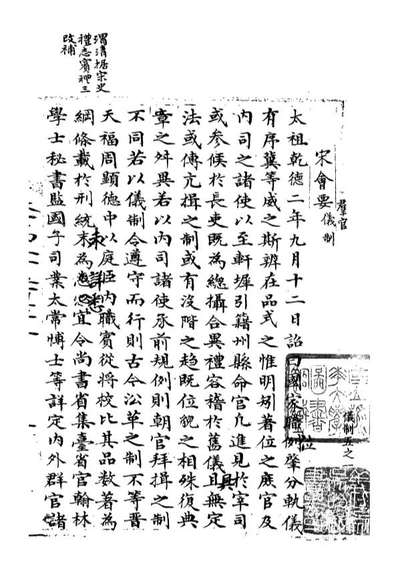 渭清据宋史
禮志賓禮三
改補
宋會要
羣官
儀制
儀制五之
太祖乾德二年九月十二日詔曰國家職例肇分軌儀
位
有序冀等威之斯辨在品式之惟明矧著位之庶官及
內司之諸使以至軒墀引籍州縣命官凡進見於宰司
或參候於長吏既為總攝合異禮容稽於舊儀且無定
具
法或傳亢揖之制或有沒階之趨既位貌之相殊復典
章之舛異若以內司諸使承前規例則朝官拜揖之制
不同若以儀制令遵守而行則古今沿革之制不等晉
天福周顯德中以庭臣內職賓從將校比其品數著為
綱條載於刑統未為宜令尚書省集臺省官翰林
未詳悉
學士秘書監國子司業太常博士等詳定內外群官諸